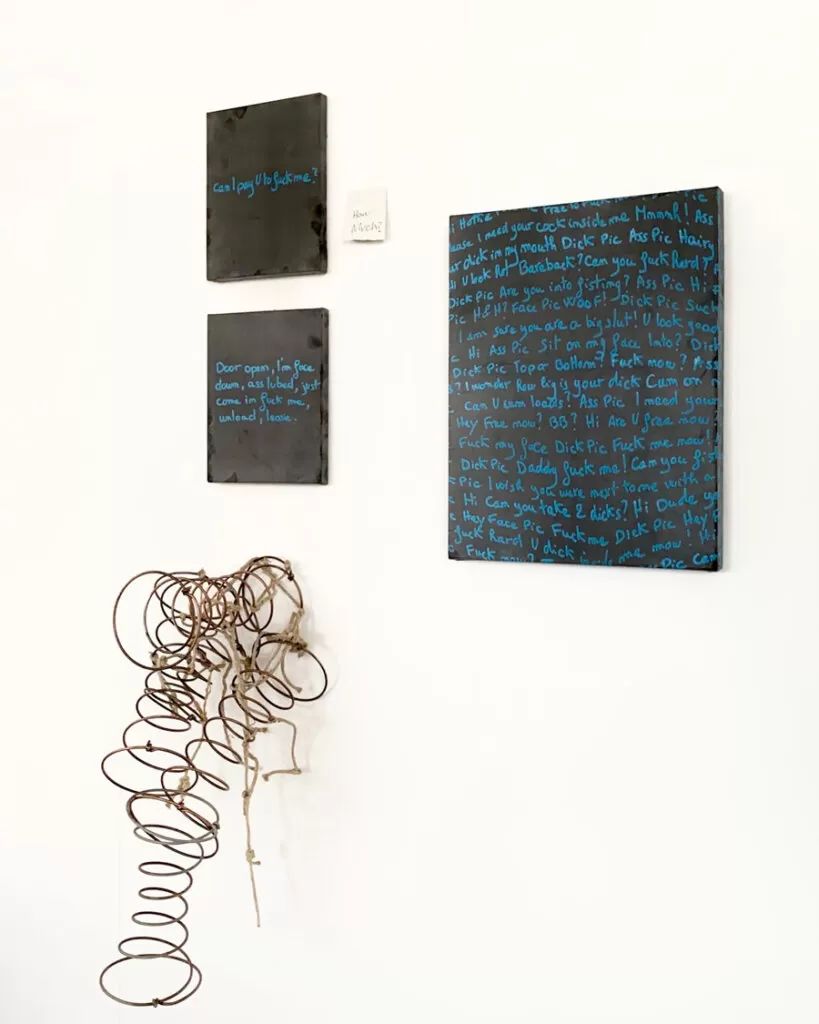 can I pay U to fuck me?
How
Much?
Door open, I'm face
down, ass lubed, just
come in fuck me,
unload, leave.
Hi Hottie Free to Fuck me
I need your cock inside me Mmmmh! Ass
dick in my mouth Dick Pic Ass Pic Hairy
U look Hot Bareback? Can you fuck Hard?
Dick Pic Are you into fisting? Ass Pic Hi
Pic H&H? Face Pic Woof! Dick Pic Suck
I am sure you are a big slut! U look good
Hi Ass Pic Sit on my face Into? Dick
Dick Pic Top or Bottom? Fuck now? Ass
? I wonder How big is your dick Cum on
Can U cum loads? Ass Pic I need your
Hey Free now? BB? Hi Are U free now
Fuck my face Dick Pic Fuck me now!
Dick Pic Daddy fuck me! Can you fist
Pic I wish you were next to me with a
Hi Can you take 2 dicks? Hi Dude
Hey Face Pic Fuck me Dick Pic Hey F
fuck Hard U dick inside me now! Hi
Fuck now? Pic Can